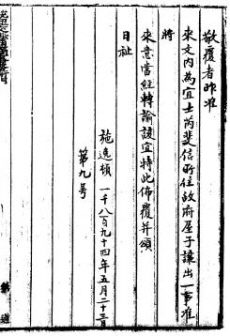 敬覆者昨准
來文內為宜士芮斐信所住故府屋子讓出一事准
將
來意當經轉諭該宜特此佈覆并頌
日祉
施逸楨 一千八百九十四年五月二十三日
第九号